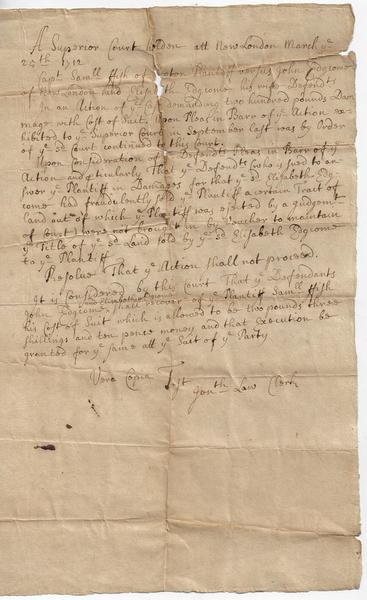 A Superior Court holden att New London March ye
25th 1712
Capt Samll ffish of Groton Plantiff versus John Edgcome
of New London and Elisabeth Edgcome his wife Defendts
In an Action of ye Case demanding two hundred pounds Dam
mage with Cost of Suit, Upon Pleas in Barr of ye Action ex-
hibited to ye Superior Court in September last was by Order
of ye sd Court continued to this Court.
Upon Consideration of ye Defendts Pleas in Barr of ye
Action and particularly That ye Defendts (who is sued to an-
swer ye Plantiff in Damages for that ye sd Elisabeth Edg-
come had fraudently sold ye Plantiff a certain Tract of
land out of which ye Plantiff was ejected by a Judgment
of Court) were not brought in by Voucher to maintain
ye Title of ye sd Land sold by ye sd Elisabeth Edgcome
to ye Plantiff
Resolve That ye Action shall not proceed.
It is Considered by this Court That ye Defendants
John Edgcome and Elisabeth Edgcome shall recover of ye Plantiff Samll ffish
his Cost of Suit which is allowed to be two pounds three
shillings and ten pence money and that Execution be
granted for ye same att ye Suit of ye Party
Vera Copia Test
Jonth Law Clerk